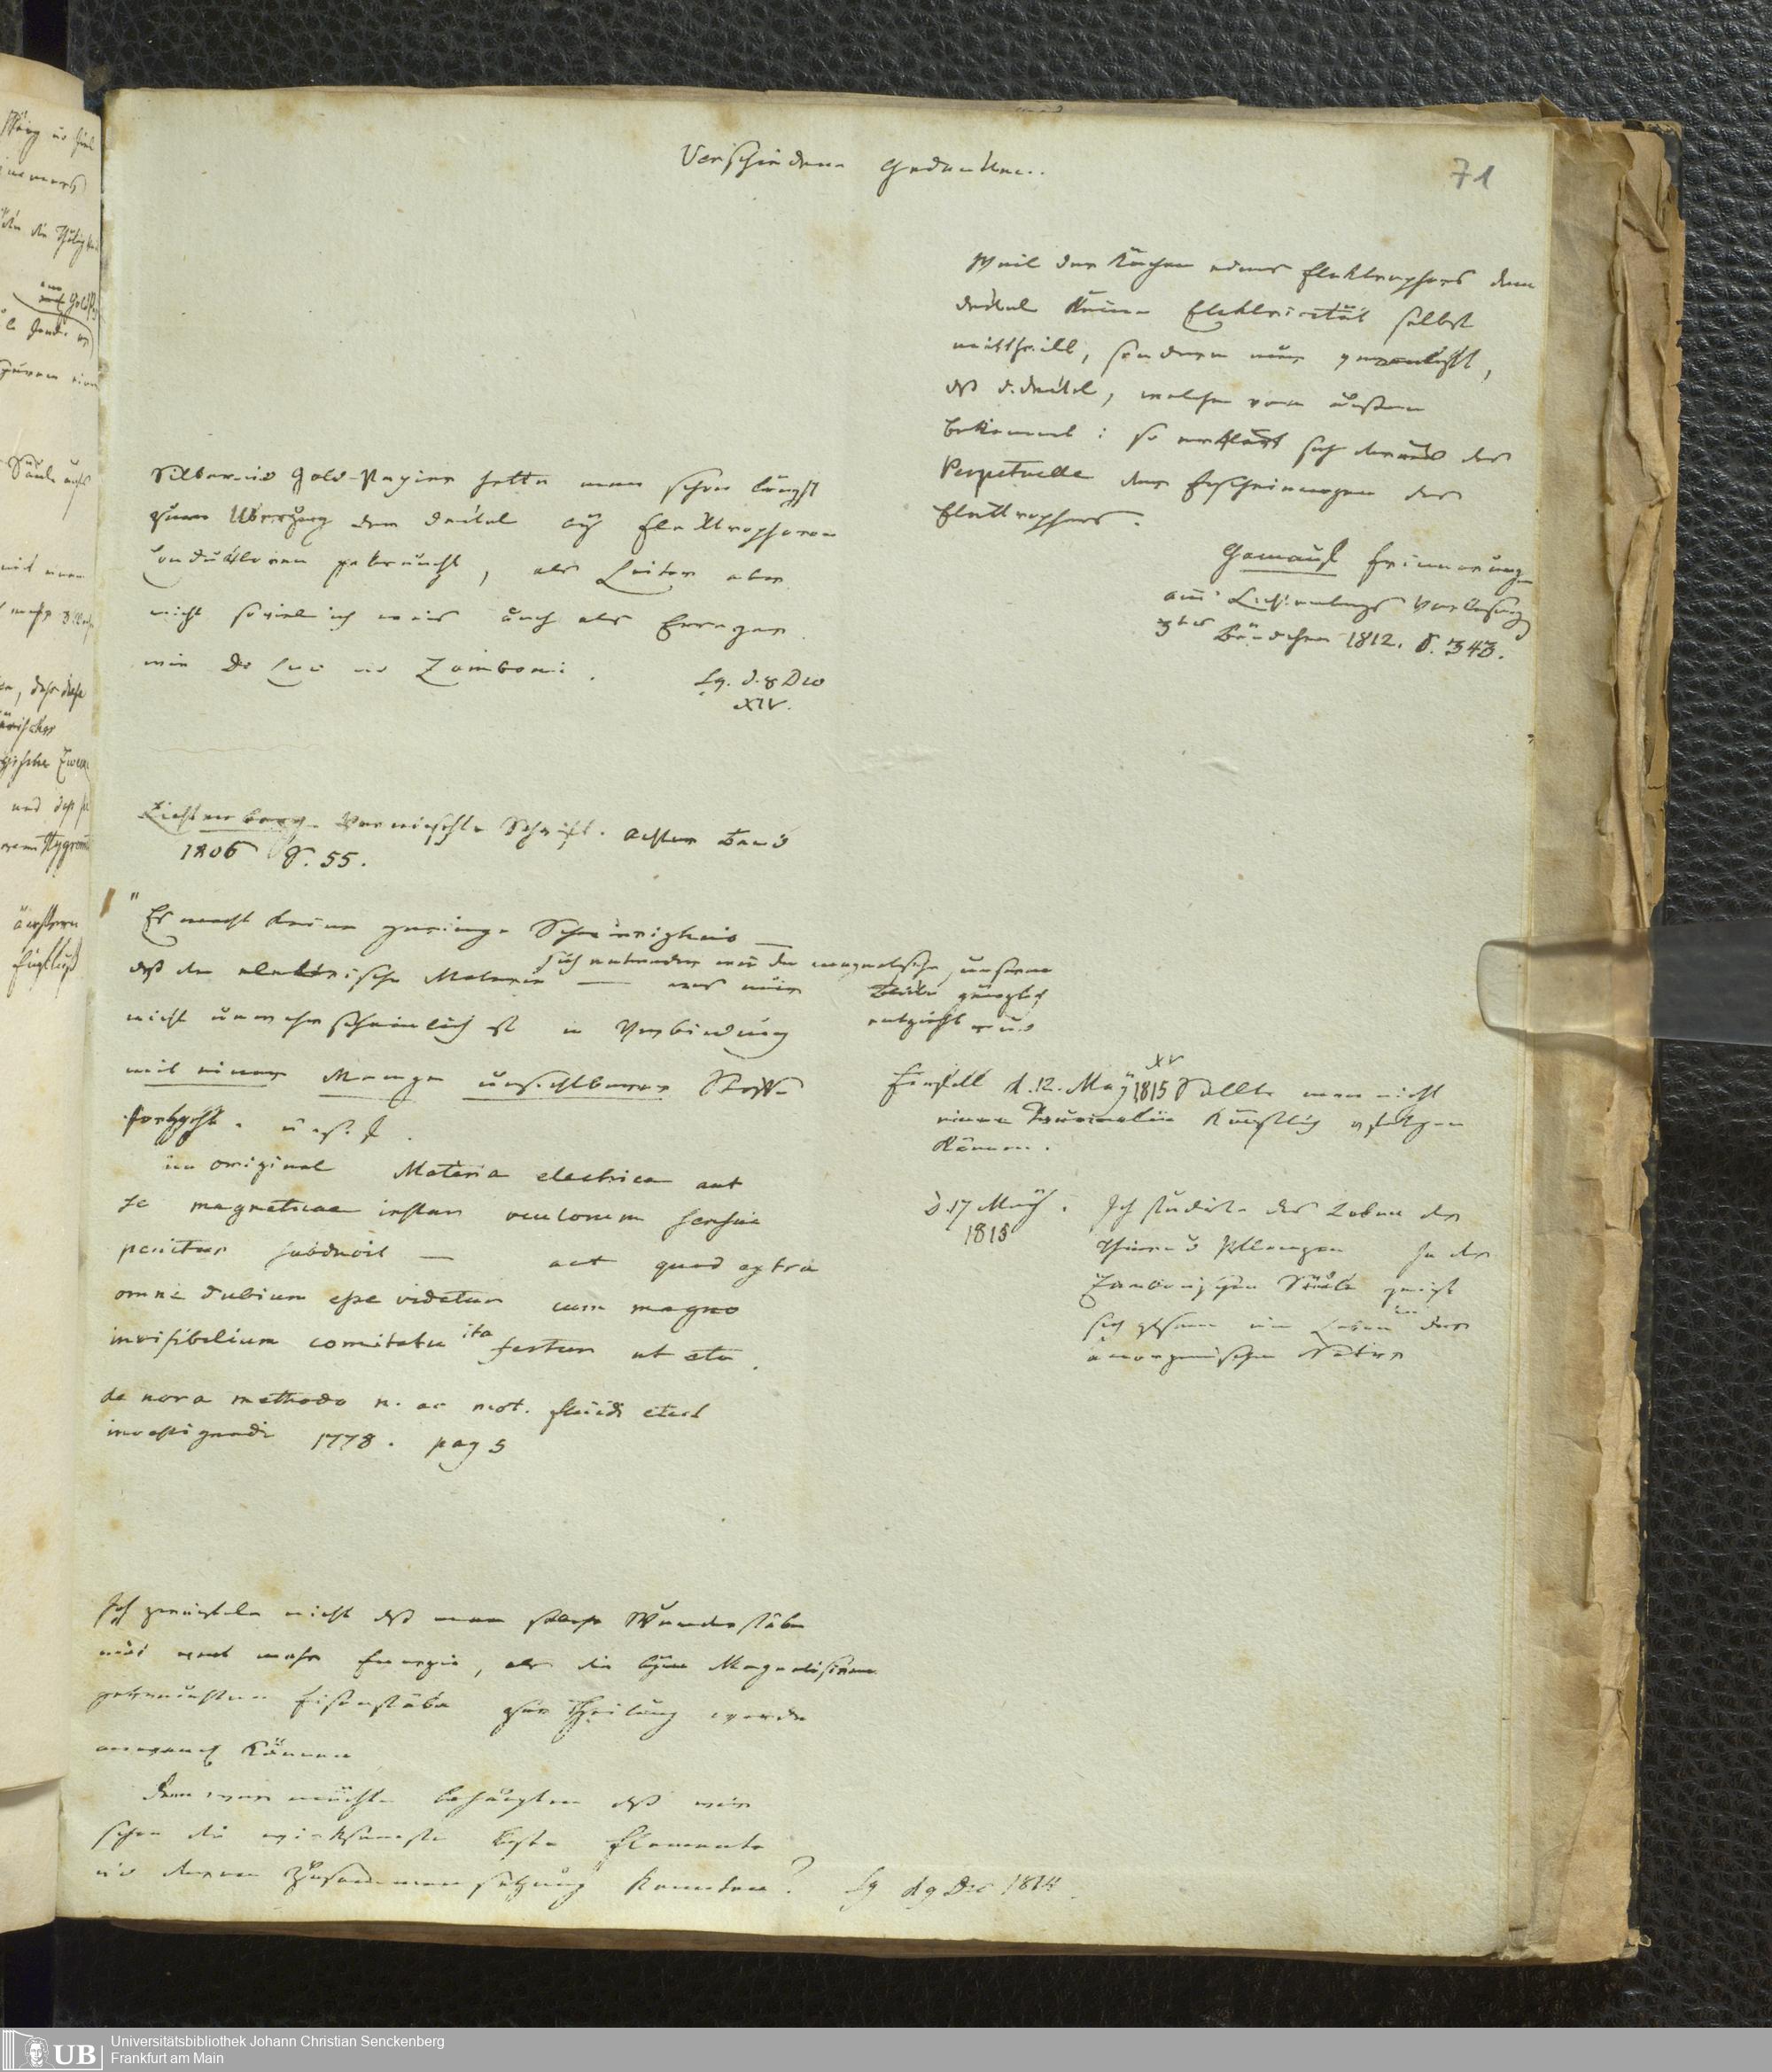 Verschiedene Gedanken..
71
Weil der Kuchen eines Elektrophors dem
Deckel keine Elektricität selbst
mittheilt, sondern nur
daß d. Deckel, welche von aüßen
bekommt: so erklärt sich daraus das
Perpetuelle der Erscheinungen des
Elektrophors.
Gamauf Erinnerungen
aus Lichtenbergs Vorlesung
3tes Bändchen 1812. S. 343.
Silber-und Gold-Papier hatte man schon längst
zum Überzug der Deckel bey Elektrophoren
Conduktoren gebraucht, als Leiter aber
nicht soviel ich weis auch als Erreger.
wie De Luc und Zamboni.
Lg. d. 8 Dec
XIV.
Lichtenberg Vermischte Schrift. Band
1806 S. 55.
"Es macht keine geringe Schwierigkeit —
daß die elektrische Materie — was mir
sich entweder wie die magnetische, unserem
nicht unwahrscheinlich ist in Verbindung
gänzlich
entzieht und
mit einer Menge unsichtbarer Stoffe
fortgeht. u. s. f.
im original Materia electrica aut
se magneticae instar oculorum sensui
penitus subducit — aut quod extra
omne dubium esse videtur cum magno
invisibilium comitatu ita fertur ut etc.
de nova methodo n. ac mot. fluidi elect
investigandi 1778. pag 5
Einfall d. 12. May 1815 XV Sollte man nicht
einen Turmalin künstlich
können.
d. 17 May. Ich studirte das Leben der
1815
Thier und Pflanzen In der
Zambonischen Säule zeigt
sich gleichsam ein Leben in der
anorganischen Natur
Ich zweifele nicht daß man solche Wunderstäbe
mit weit mehr Energie, als die beym Magnetisiren
gebrauchten Eisenstäbe zur Heilung werde
anwenden können
Denn wer möchte behaupten daß wir
schon die wirksamsten Elemente
und deren Zusammensetzung kennten?
Lg d 9 Dec 1814.
UB
Universitätsbibliothek Johann Christian Senckenberg
Frankfurt am Main